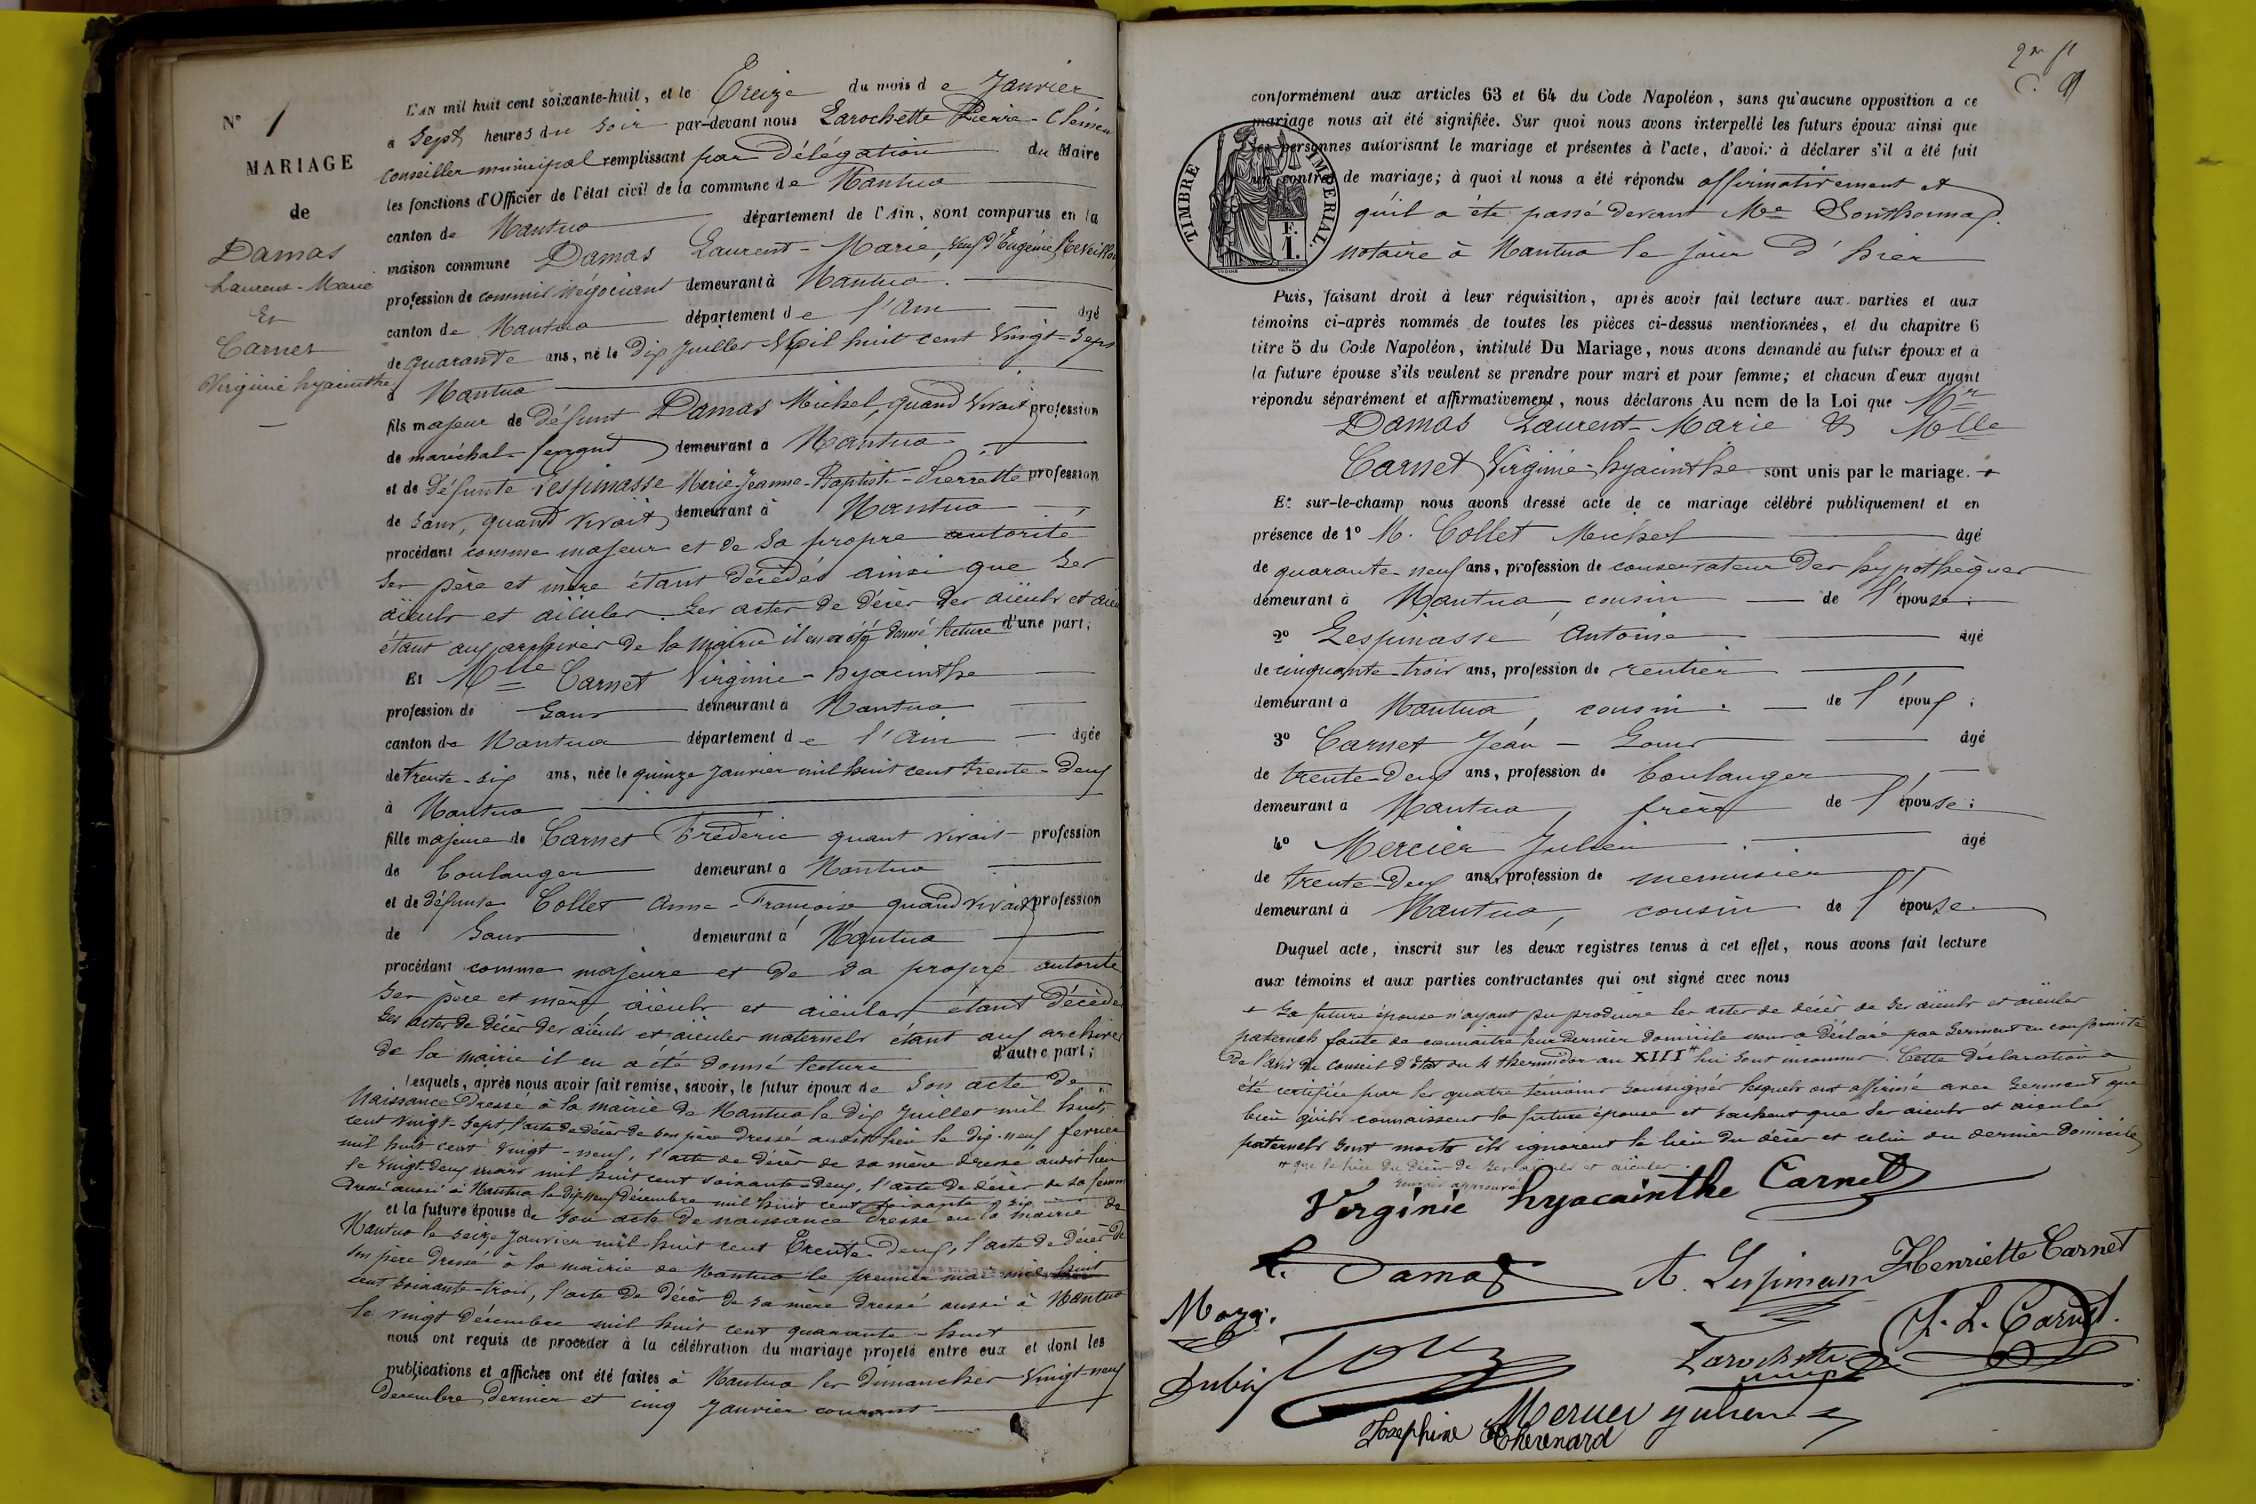 N° 1
MARIAGE
de
Damas
Laurent-Marie
Et
Carnet
Virginie hyacinthe
L'AN mil huit cent soixante-huit, et le Treize du mois de Janvier
a Sept heures du Soir par-devant nous Larochette Pierre-Clémen
conseiller municipal remplissant par Délégation du Maire
les fonctions d'Officier de l'état civil de la commune de Nantua
canton de Nantua département de l'Ain, sont comparus en la
maison commune Damas Laurent-Marie, veuf d'Eugénie Reveillon
profession de commis négociant demeurant à Nantua
canton de Nantua département de l'Ain âgé
de quarante ans, né le Dix Juillet Mil huit cent Vingt-Sept
à Nantua
fils majeur de Défunt Damas Michel, quand vivait profession
de maréchal-ferrant demeurant à Nantua
et de Défunte Lespinasse Marie-Jeanne-Baptiste-Pierrette profession
de Sans, quand vivait, demeurant à Nantua
procédant comme majeur et de sa propre autorité
Ses père et mère étant Décédés ainsi que Ses
aïeuls et aïeules. Les actes de Décès des aïeuls et aïeu
étant aux archives de la Mairie il en a été donné lecture d'une part;
Et Mlle Carnet Virginie-hyacinthe
profession de Sans demeurant à Nantua
canton de Nantua département de l'Ain âgée
de Trente-six ans, née le quinze Janvier mil huit cent trente-Deux
à Nantua
fille majeure de Carnet Fréderic quant vivait profession
de boulanger demeurant à Nantua
et de défunte Collet Anne-Françoise quand vivait profession
de Sans demeurant à Nantua
procédant comme majeure et de sa propre autorité
Ses père et mère aïeuls et aïeules étant Décédés
Les actes de Décès des aïeuls et aïeules maternels étant aux archives
de la mairie il en a été donné lecture d'autre part;
Lesquels, après nous avoir fait remise, savoir, le futur époux de Son acte de
Naissance Dressé à la mairie de Nantua le dix Juillet mil huit
cent vingt-Sept, l'acte de décès de son père dressé audit lieu le dix-neuf fevrier
mil huit cent vingt-neuf, l'acte de décès de sa mère dressé audit lieu
le vingt-deux mars mil huit cent soixante-Deux, l'acte de décès de sa femm
Dressé aussi à Nantua le dix-neuf décembre mil huit cent soixante-six
et la future épouse de Son acte de naissance dressé en la mairie de
Nantua le seize Janvier mil huit cent Trente-Deux, l'acte de Décès de
son père Dressé à la mairie de Nantua le premier mai mil huit
cent soixante-trois, l'acte de Décès de sa mère dressé aussi à Nantua
le vingt Décembre mil huit cent quarante-huit
nous ont requis de procéder à la célébration du mariage projeté entre eux et dont les
publications et affiches ont été faites à Nantua les dimanches Vingt-neuf
Decembre dernier et cinq Janvier courant
conformément aux articles 63 et 64 du Code Napoléon, sans qu'aucune opposition a ce
mariage nous ait été signifiée. Sur quoi nous avons interpellé les futurs époux ainsi que
les personnes autorisant le mariage et présentes à l'acte, d'avoir à déclarer s'il a été fait
un contrat de mariage; à quoi il nous a été répondu affirmativement et
qu'il a été passé devant Me Sonthonnax
notaire à Nantua le jour d'hier
TIMBRE IMPERIAL
1 F.
Puis, faisant droit à leur réquisition, après avoir fait lecture aux parties et aux
témoins ci-après nommés de toutes les pièces ci-dessus mentionnées, et du chapitre 6
titre 5 du Code Napoléon, intitulé Du Mariage, nous avons demandé au futur époux et à
la future épouse s'ils veulent se prendre pour mari et pour femme; et chacun d'eux ayant
répondu séparément et affirmativement, nous déclarons Au nom de la Loi que Mr
Damas Laurent-Marie & Mlle
Carnet Virginie-hyacinthe sont unis par le mariage. +
Et sur-le-champ nous avons dressé acte de ce mariage célébré publiquement et en
présence de 1° M. Collet Michel âgé
de quarante-neuf ans, profession de conservateur Des hypothèques
demeurant à Nantua, cousin de l'épouse;
2° Lespinasse Antoine âgé
de cinquante-trois ans, profession de rentier
demeurant à Nantua, cousin de l'époux;
3° Carnet Jean-Louis âgé
de trente-Deux ans, profession de boulanger
demeurant à Nantua, frère de l'épouse;
4° Mercier Julien âgé
de trente-Deux ans, profession de menuisier
demeurant à Nantua, cousin de l'épouse
Duquel acte, inscrit sur les deux registres tenus à cet effet, nous avons fait lecture
aux témoins et aux parties contractantes qui ont signé avec nous
+ La future épouse n'ayant pu produire les actes de décès de ses aïeuls et aïeules
paternels faute de connaitre leur dernier domicile nous a déclaré par Serment en conformité
de l'avis du conseil d'Etat du 4 thermidor an XIII # lui sont inconnus. Cette déclaration a
été certifiée par les quatre témoins soussignés lesquels ont affirmé avec Serment que
bien qu'ils connaissent la future épouse et sachent que Ses aïeuls et aïeules
paternels sont morts ils ignorent le lieu du décès et celui du dernier Domicile
# que le lieu du décès de ses aïeuls et aïeules.
Renvoi approuvé
Virginie hyacainthe Carnet
L. Damas
A. Lespinasse
Henriette Carnet
J. L. Carnet
Larochette
Mercier Julien
Josephine Thevenard